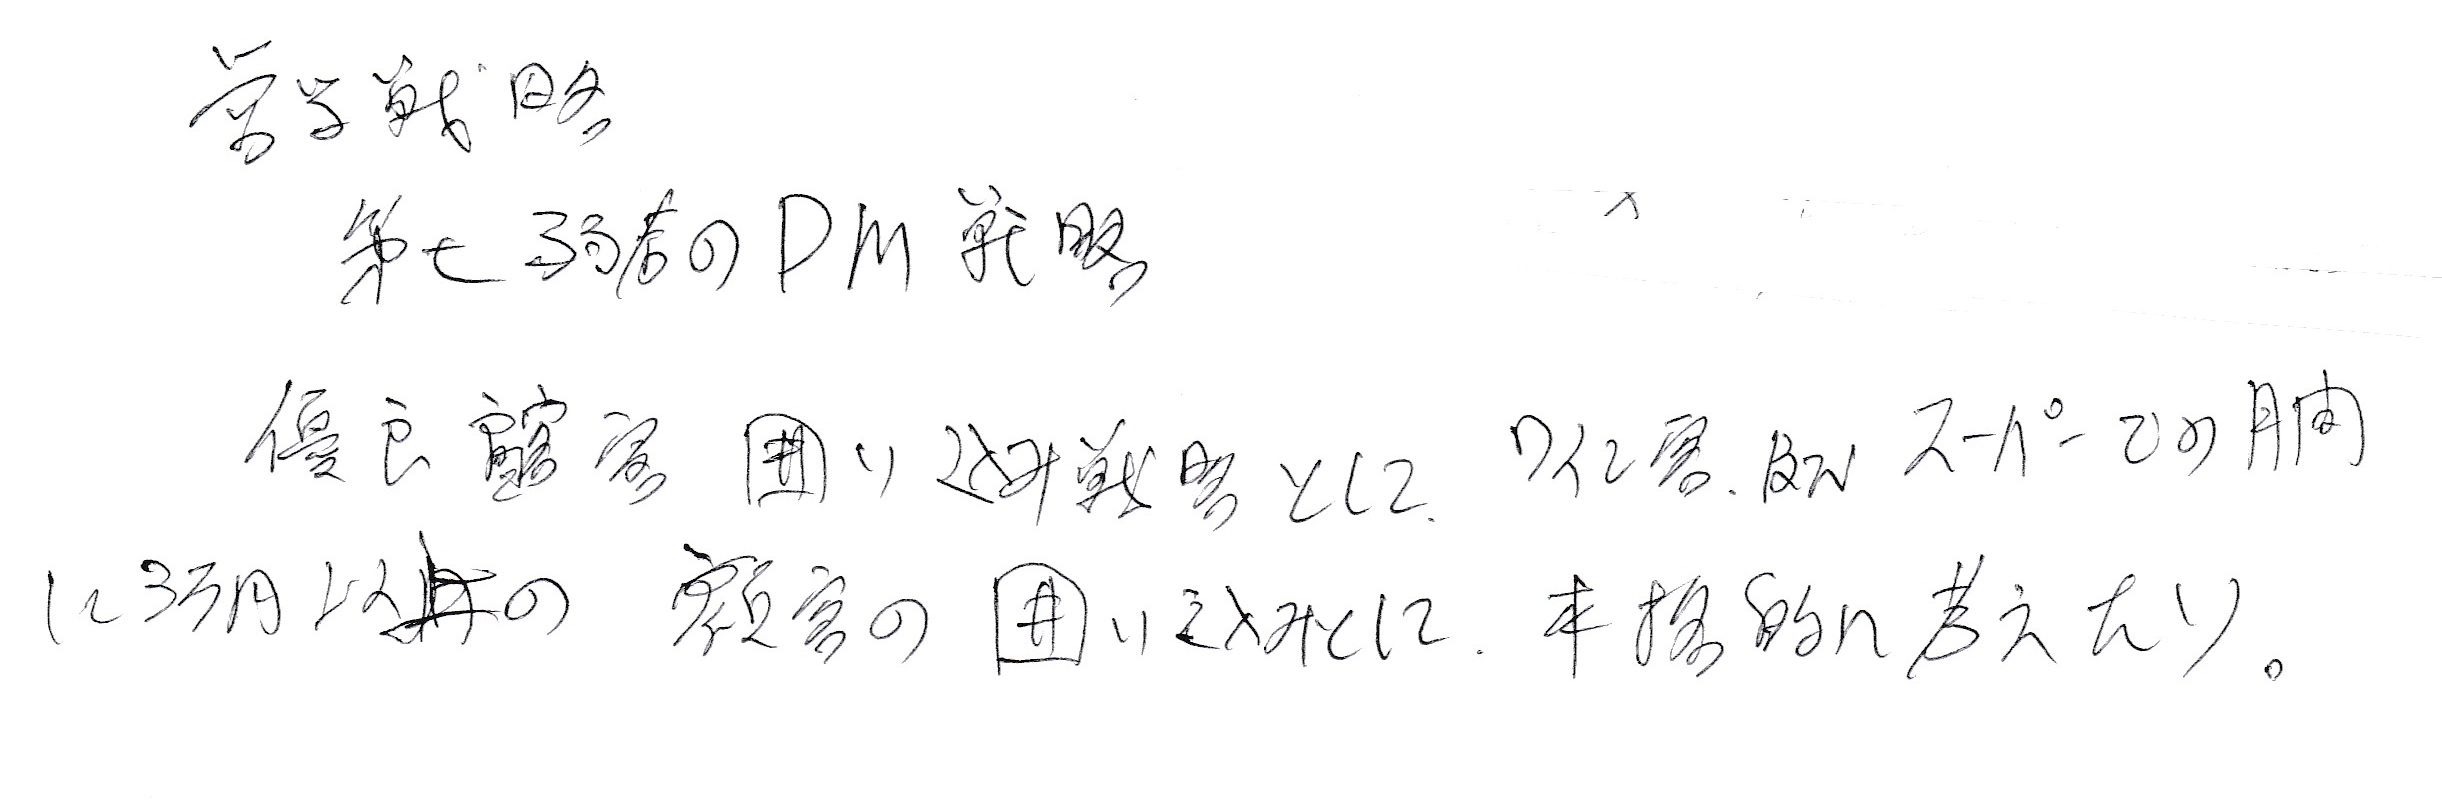 営学戦略
第七弱者のDM戦略
優良顧客囲い込み戦略として、ワイン客、及びスーパーでの月間
に3万円以上の顧客の囲い込みとして、本格的に考えたい。